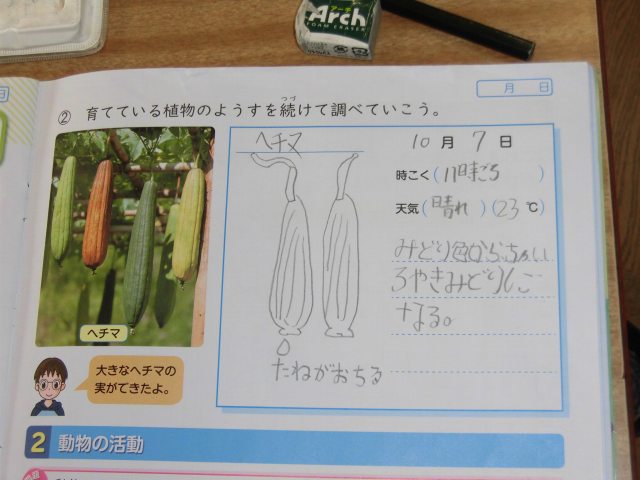 Arch
アーチ
FOAM ERASER
月 日
② 育てている植物のようすを続けて調べていこう。
つづ
ヘチマ
10月7日
時こく(11時ごろ)
天気(晴れ)(23℃)
みどり色からちゃい
ろやきみどりに
なる。
たねがおちる
ヘチマ
大きなヘチマの
実ができたよ。
2 動物の活動